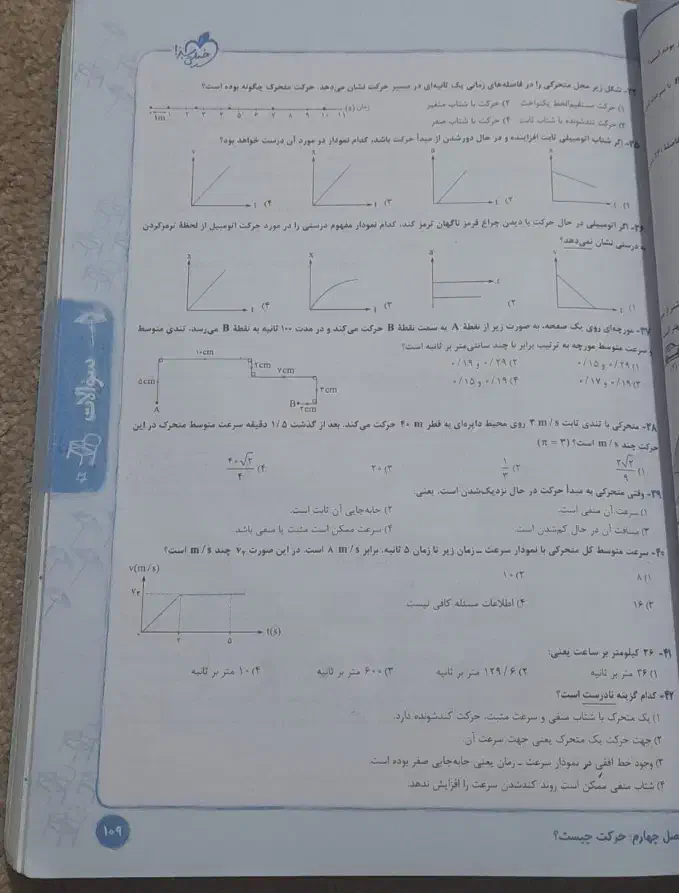 ۳۴- شکل زیر محل متحرکی را در فاصله‌های زمانی یک ثانیه‌ای در مسیر حرکت نشان می‌دهد. حرکت متحرک چگونه بوده است؟
۱) حرکت مستقیم‌الخط یکنواخت ۲) حرکت با شتاب متغیر
۳) حرکت تندشونده با شتاب ثابت ۴) حرکت با شتاب صفر
۱ ۲ ۳ ۴ ۵ ۶ ۷ ۸ ۹ ۱۰ ۱۱ زمان (s)
1m
۳۵- اگر شتاب اتومبیلی ثابت افزاینده و در حال دورشدن از مبدأ حرکت باشد، کدام نمودار در مورد آن درست خواهد بود؟
۱) ۲) ۳) ۴)
۳۶- اگر اتومبیلی در حال حرکت با دیدن چراغ قرمز ناگهان ترمز کند، کدام نمودار مفهوم درستی را در مورد حرکت اتومبیل از لحظهٔ ترمزکردن
به درستی نشان نمی‌دهد؟
۱) ۲) ۳) ۴)
۳۷- مورچه‌ای روی یک صفحه، به صورت زیر از نقطهٔ A به سمت نقطهٔ B حرکت می‌کند و در مدت ۱۰۰ ثانیه به نقطهٔ B می‌رسد. تندی متوسط
و سرعت متوسط مورچه به ترتیب برابر با چند سانتی‌متر بر ثانیه است؟
۱) ۰/۲۹ و ۰/۱۵ ۲) ۰/۲۹ و ۰/۱۹
۳) ۰/۱۹ و ۰/۱۷ ۴) ۰/۱۹ و ۰/۱۵
۱۰cm
۲cm
۷cm
۵cm
۳cm
۲cm
A
B
۳۸- متحرکی با تندی ثابت ۴ m/s روی محیط دایره‌ای به قطر ۴۰ m حرکت می‌کند. بعد از گذشت ۱/۵ دقیقه سرعت متوسط متحرک در این
حرکت چند m/s است؟ (π = ۳)
۱) ۲√۲/۹ ۲) ۱/۳ ۳) ۲۰ ۴) ۴۰√۲/۴
۳۹- وقتی متحرکی به مبدأ حرکت در حال نزدیک‌شدن است، یعنی:
۱) سرعت آن منفی است. ۲) جابه‌جایی آن ثابت است.
۳) مسافت آن در حال کم‌شدن است. ۴) سرعت ممکن است مثبت یا منفی باشد.
۴۰- سرعت متوسط کل متحرکی با نمودار سرعت ـ زمان زیر تا زمان ۵ ثانیه، برابر ۸ m/s است. در این صورت v₂ چند m/s است؟
۱) ۸ ۲) ۱۰
۳) ۱۶ ۴) اطلاعات مسئله کافی نیست.
v(m/s)
v₂
۲ ۵ t(s)
۴۱- ۳۶ کیلومتر بر ساعت یعنی:
۱) ۳۶ متر بر ثانیه ۲) ۱۲۹/۶ متر بر ثانیه ۳) ۶۰۰ متر بر ثانیه ۴) ۱۰ متر بر ثانیه
۴۲- کدام گزینه نادرست است؟
۱) یک متحرک با شتاب منفی و سرعت مثبت، حرکت کندشونده دارد.
۲) جهت حرکت یک متحرک یعنی جهت سرعت آن.
۳) وجود خط افقی در نمودار سرعت ـ زمان یعنی جابه‌جایی صفر بوده است.
۴) شتاب منفی ممکن است روند کندشدن سرعت را افزایش ندهد.
سوالات
۱۰۹
صل چهارم: حرکت چیست؟